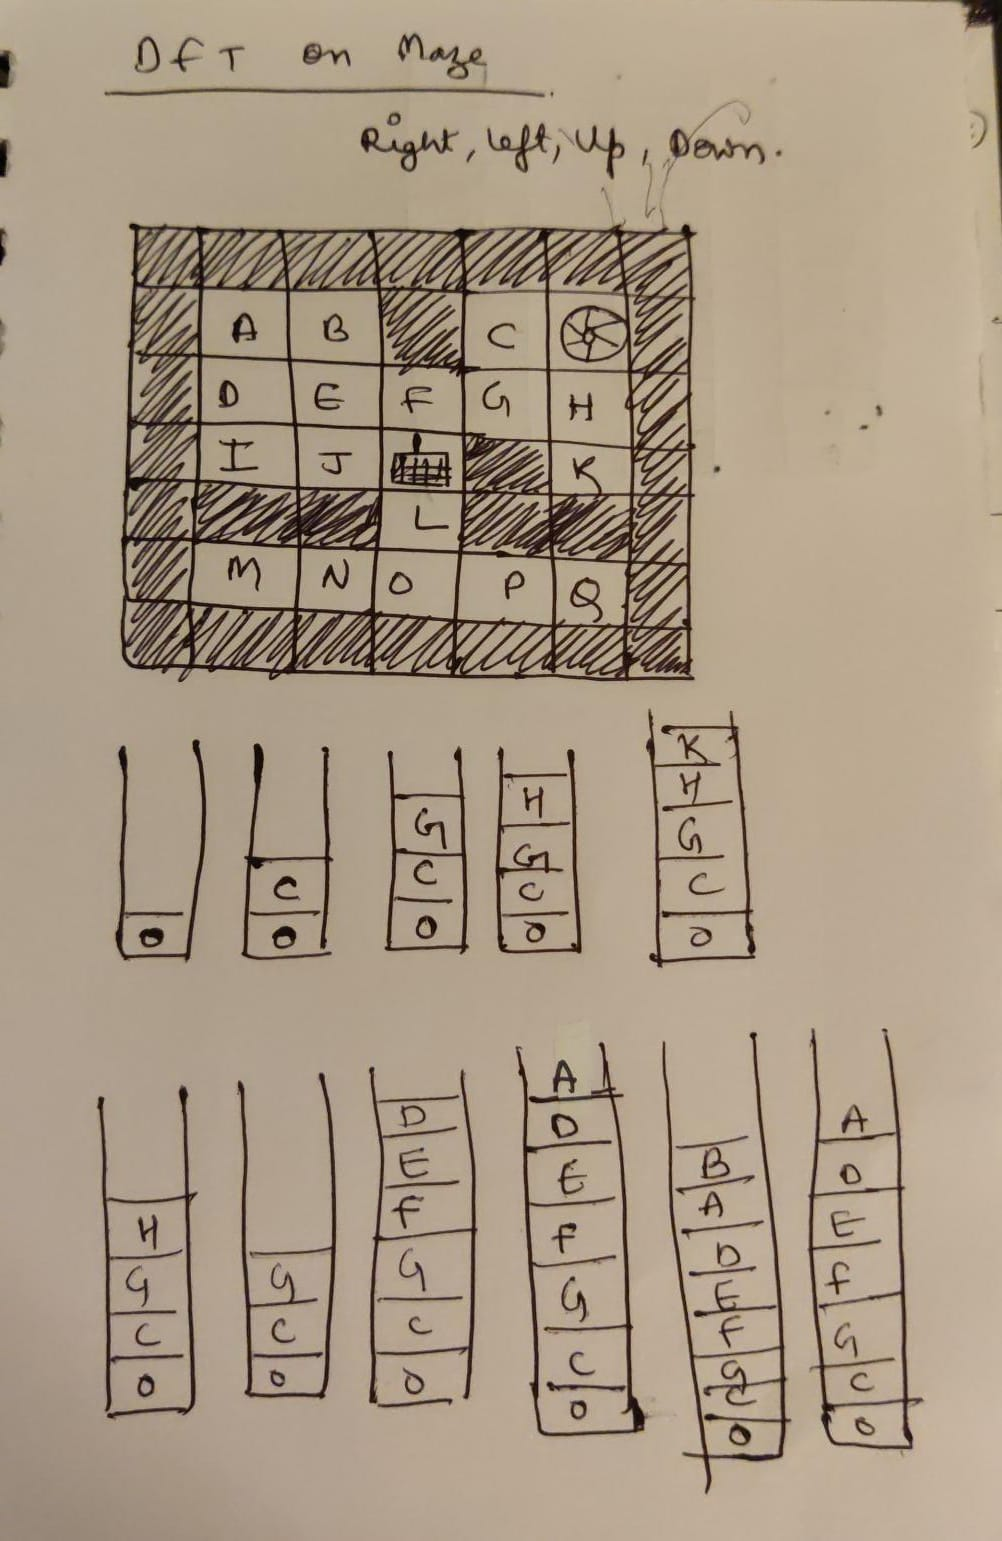 DFT on Maze
Right, Left, Up, Down.
A B C
D E F G H
I J K
L
M N O P Q
O
C
O
G
C
O
H
G
C
O
K
H
G
C
O
H
G
C
O
G
C
O
D
E
F
G
C
O
A
D
E
F
G
C
O
B
A
D
E
F
G
C
O
A
D
E
F
G
C
O